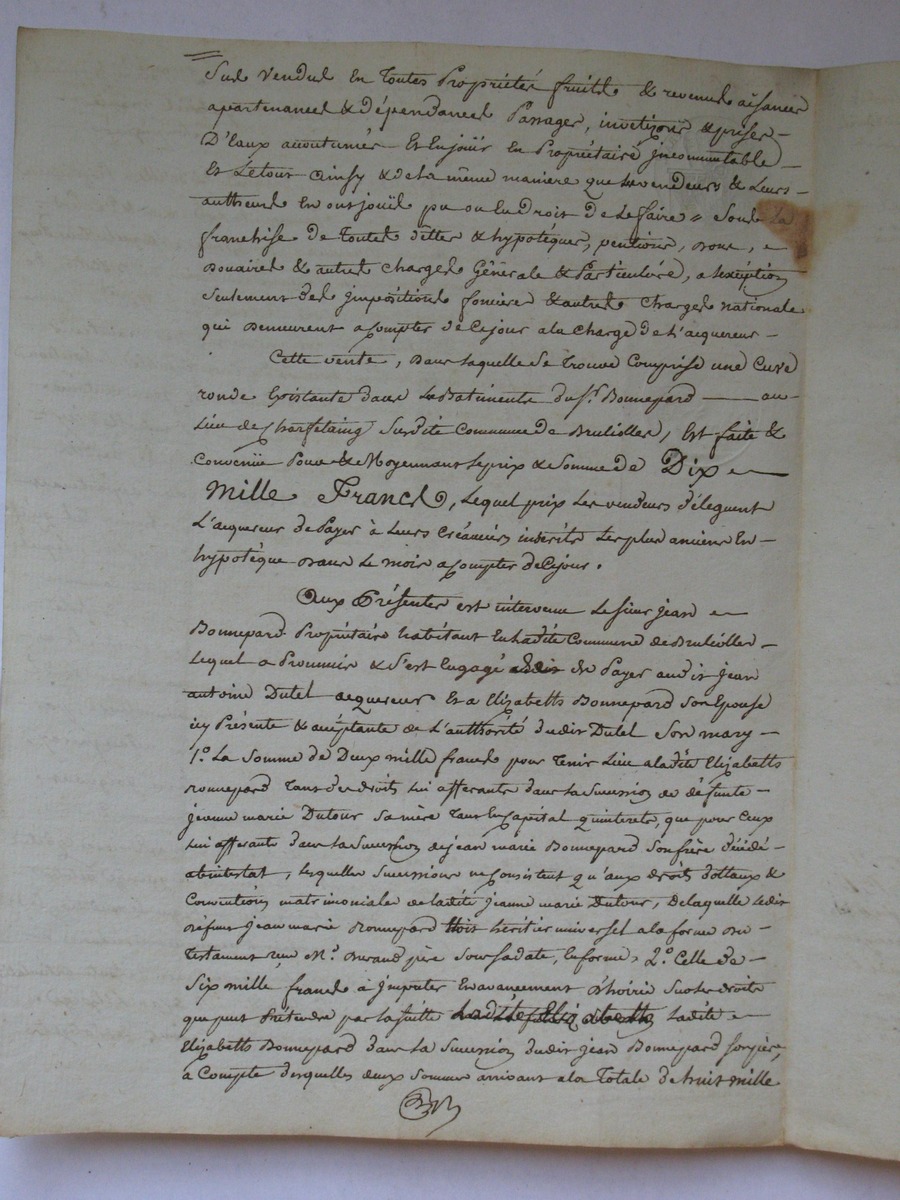 Sus vendus En Toutes Propriétés fruits & revenus aisances
apartenances & dépendances Passages, investizons & prises
D'Eaux acoutumés Et En jouir En Propriétaire Incommutable
Et Le tout Ainsy & de la même maniere que les vendeurs & Leurs
autheurs En ont jouis pu ou En Droit de Le faire = Sous La
franchise de Toutes dettes & hypotéques, pentions, Doue,
Douaires & autres Charges Générale & Particuliére, a lexéption
Seulement des Impositions fonciere & autres Charges nationale
qui Demeurent a Compter de Ce jour a la Charge de L'aquereur
Cette vente, Dans laquelle Se Trouve Comprise une Cuve
ronde Existante dans Les Batiments du Sr. Bonnepard au
Lieu de Charfetaing Susdite Commune de Brulioles, Est faite &
Convenüe Pour & Moyennant Le prix & Somme de Dix
Mille Francs, Lequel prix Les vendeurs déleguent
L'aquereur de Payer à Leurs Créanciers inscrits Les plus anciens En
hypotéque Dans Le mois a Compter de Ce jour.
Aux Présentes est intervenu Le sieur jean
Bonnepard Propriétaire habitant En Ladite Commune de Brulioles
Lequel a Promis & S'est Engagé de Payer audit Jean
antoine Dutel aequereur Et a Elizabeth Bonnepard Son Epouse
icy Présente & acéptante de L'authorité dudit Dutel Son mary
1.° La Somme de Deux mille francs pour Tenir Lieu a ladite Elizabeth
Bonnepard Tant des droits Lui afferants dans La Sucession de défunte
jeanne marie Dutour Sa mère Tant En Capital qu'interets, que pour Ceux
Lui afferants dans La Sucession de jean marie Bonnepard Son frère décédé
abintestat, Lesquelles Sucessions ne Consistent qu'aux droits dottaux &
Conventions matrimoniales de ladite jeanne marie Dutour, de laquelle Ledit
défunt Jean marie Bonnepard étoit héritier universel a la forme du
Testament reçu Me. Durand père Sous Sa date, En forme, 2.° Celle de
Six mille francs à Imputer En avancement d'hoirie Sur les droits
que peut Prétendre par la Suitte Ladite
Elizabeth Bonnepard dans La Sucession dudit jean Bonnepard Son père,
a Compte desquelles deux Sommes arrivant a la Totale de huit mille